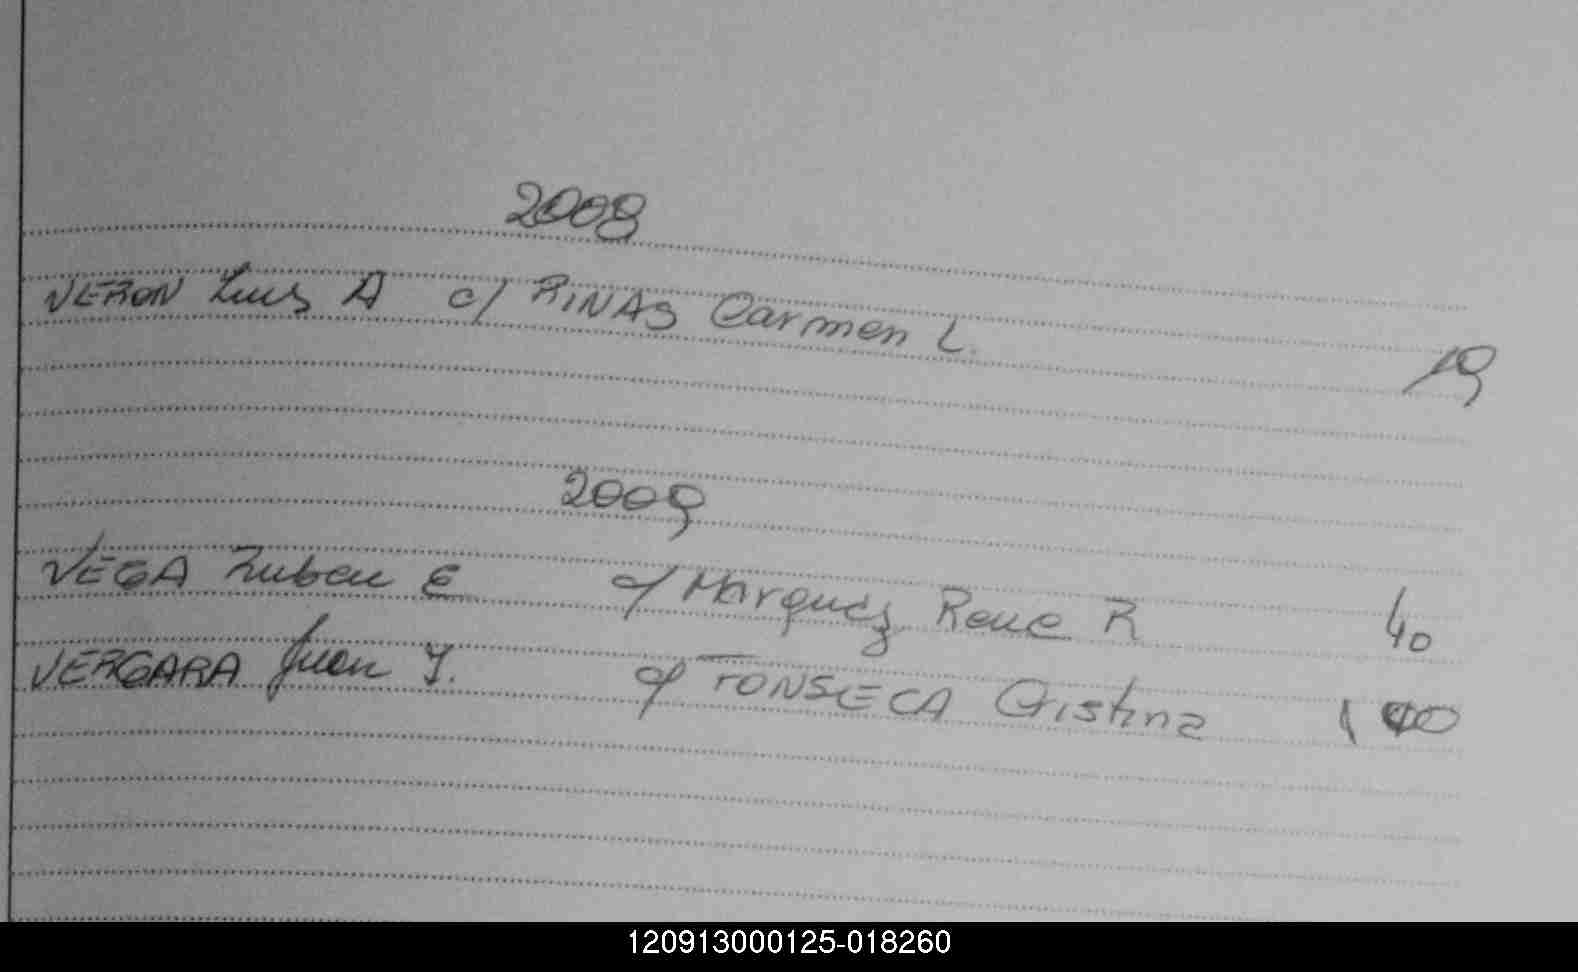 2008
VERON Luis A c/ RINAS Carmen L. 19
2009
VEGA Ruben E c/ Marquez Rene R 40
VERGARA Juan J. c/ FONSECA Cristina 100
120913000125-018260